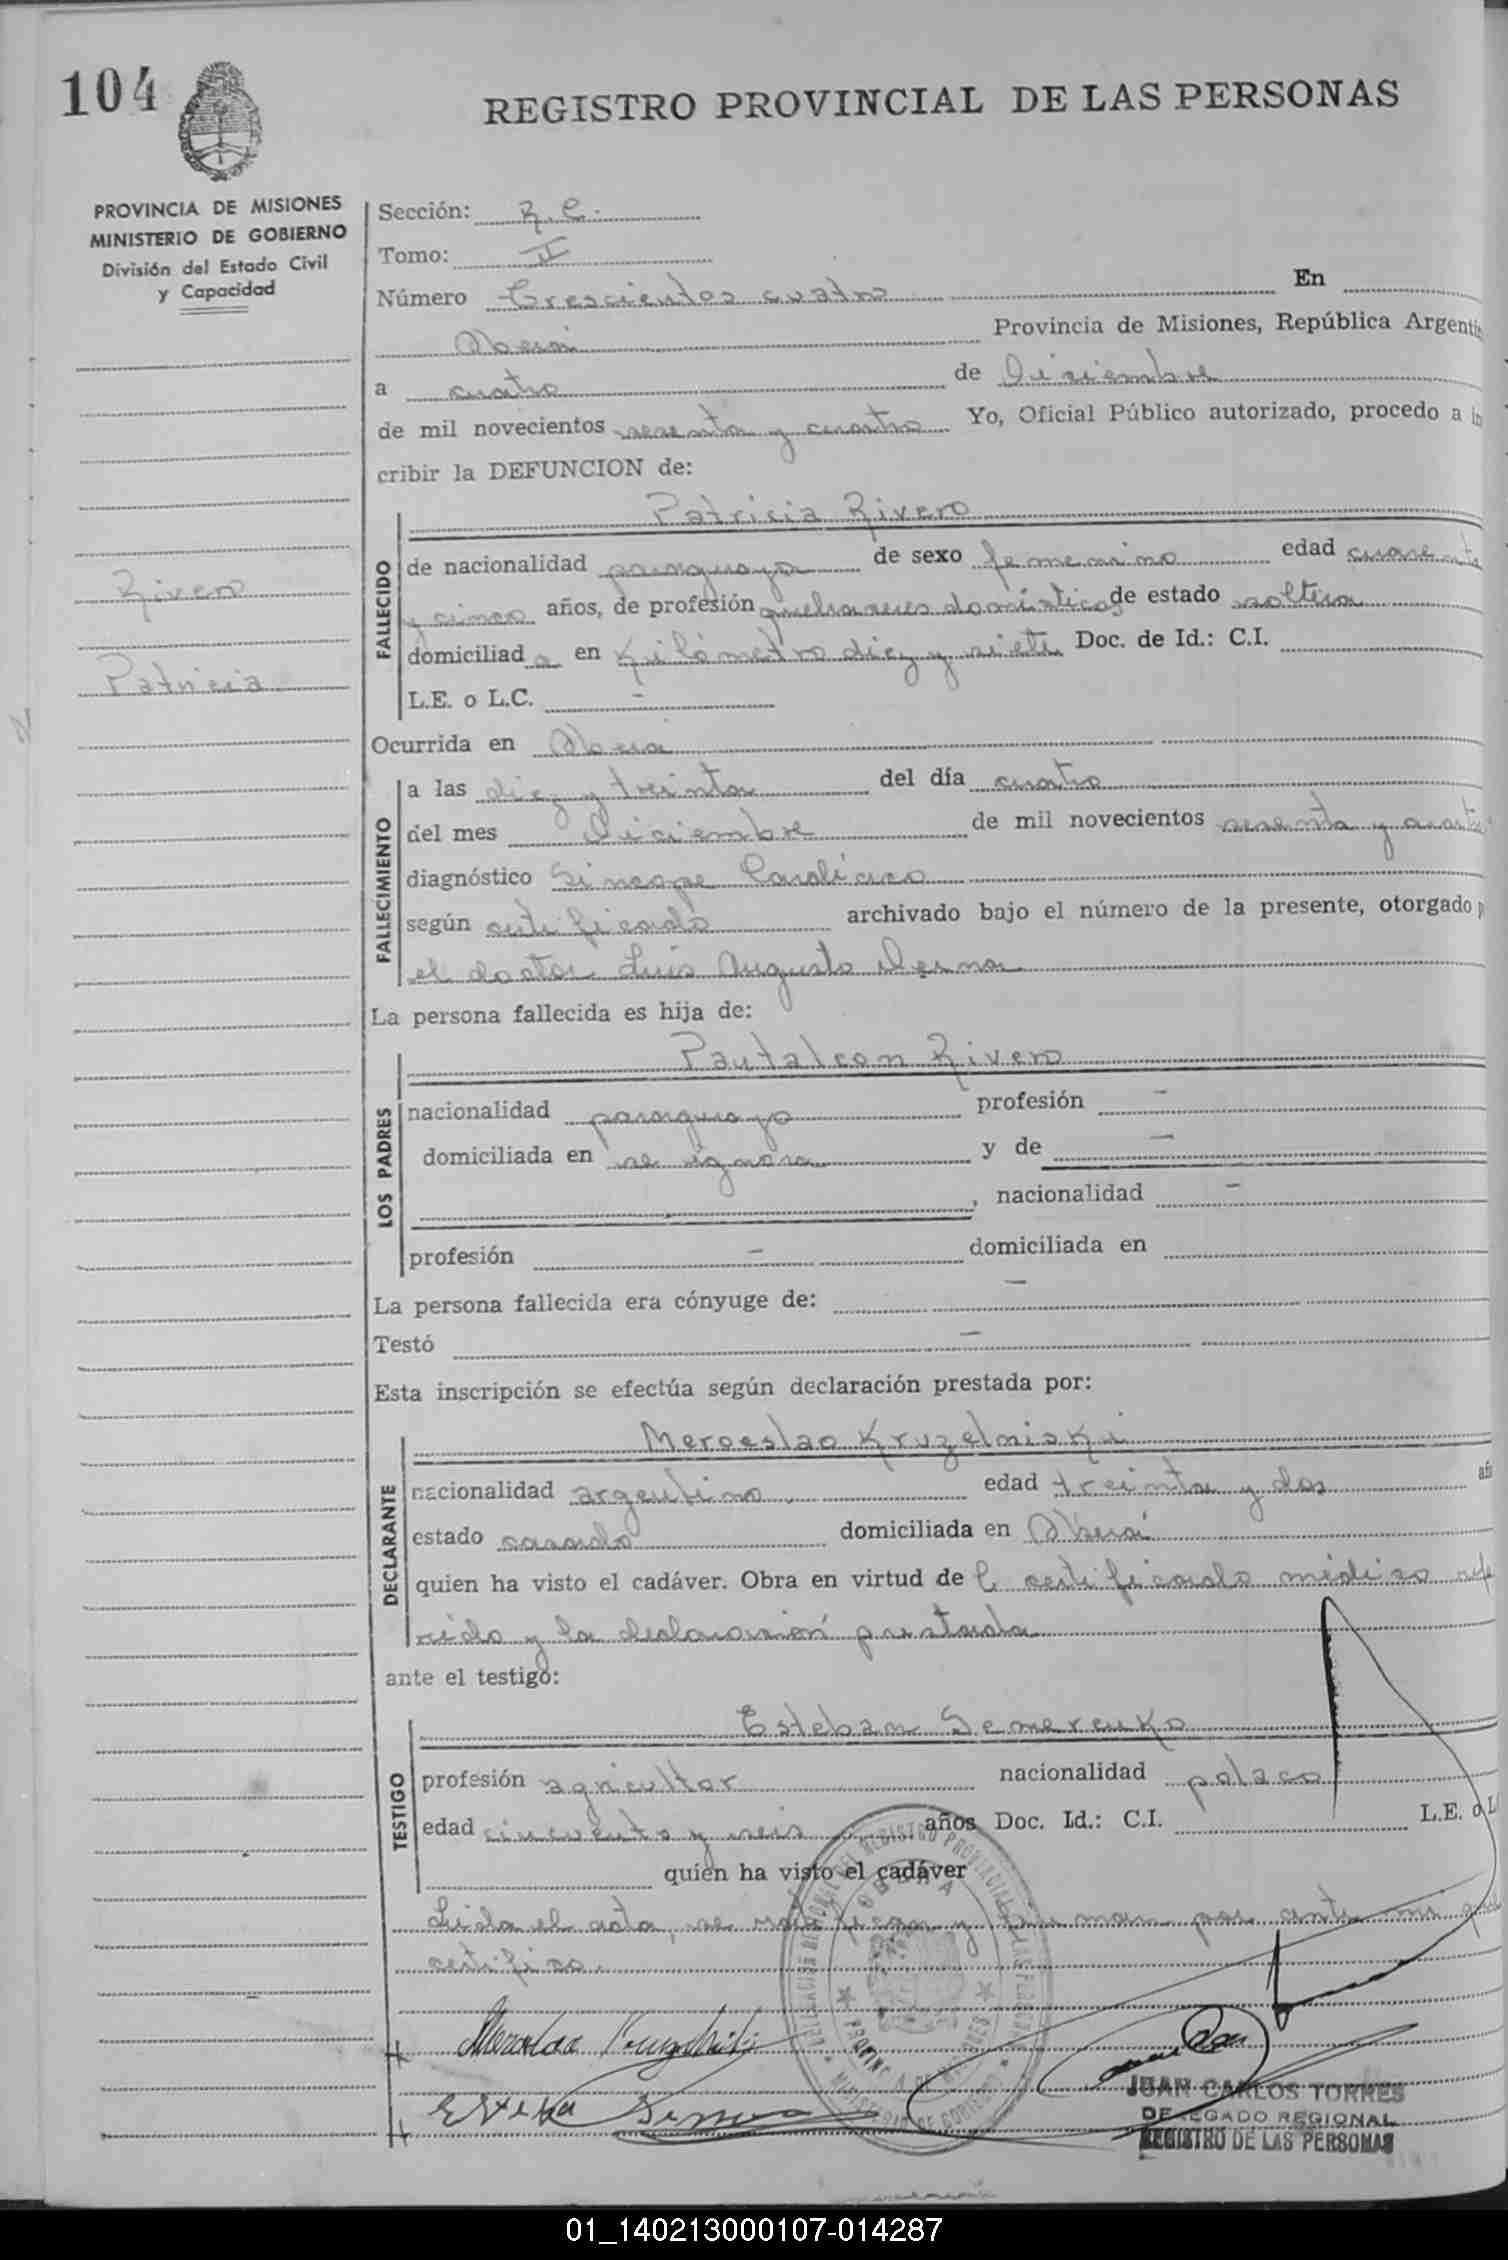 104
REGISTRO PROVINCIAL DE LAS PERSONAS
PROVINCIA DE MISIONES
MINISTERIO DE GOBIERNO
División del Estado Civil
y Capacidad
Rivero
Patricia
Sección: R.C.
Tomo: II
Número Trescientos cuatro En
Oberá Provincia de Misiones, República Argentin
a cuatro de Diciembre
de mil novecientos sesenta y cuatro Yo, Oficial Público autorizado, procedo a in
cribir la DEFUNCION de:
Patricia Rivero
FALLECIDO
de nacionalidad paraguaya de sexo femenino edad cuarenta
y cinco años, de profesión quehaceres domésticos de estado soltera
domiciliad a en Kilómetro diez y siete Doc. de Id.: C.I.
L.E. o L.C. -
Ocurrida en Oberá
FALLECIMIENTO
a las diez y treinta del día cuatro
del mes Diciembre de mil novecientos sesenta y cuatro
diagnóstico Sincope Cardíaco
según certificado archivado bajo el número de la presente, otorgado p
el doctor Luis Augusto Derna
La persona fallecida es hija de:
Pantaleon Rivero
LOS PADRES
nacionalidad paraguayo profesión -
domiciliada en se ignora y de -
, nacionalidad -
profesión - domiciliada en
La persona fallecida era cónyuge de: -
Testó -
Esta inscripción se efectúa según declaración prestada por:
Meroeslao Kruzelniski
DECLARANTE
nacionalidad argentino edad treinta y dos añ
estado casado domiciliada en Oberá
quien ha visto el cadáver. Obra en virtud de l certificado médico refe
rido y la declaración prestada
ante el testigo:
Esteban Semerenko
TESTIGO
profesión agricultor nacionalidad polaco
edad cincuenta y seis años Doc. Id.: C.I. L.E. o L
quien ha visto el cadáver
Leida el acta, se ratifican y firman por ante mi que
certifico.
OBERA
MINISTERIO DE GOBIERNO
JUAN CARLOS TORRES
DELEGADO REGIONAL
REGISTRO DE LAS PERSONAS
01_140213000107-014287